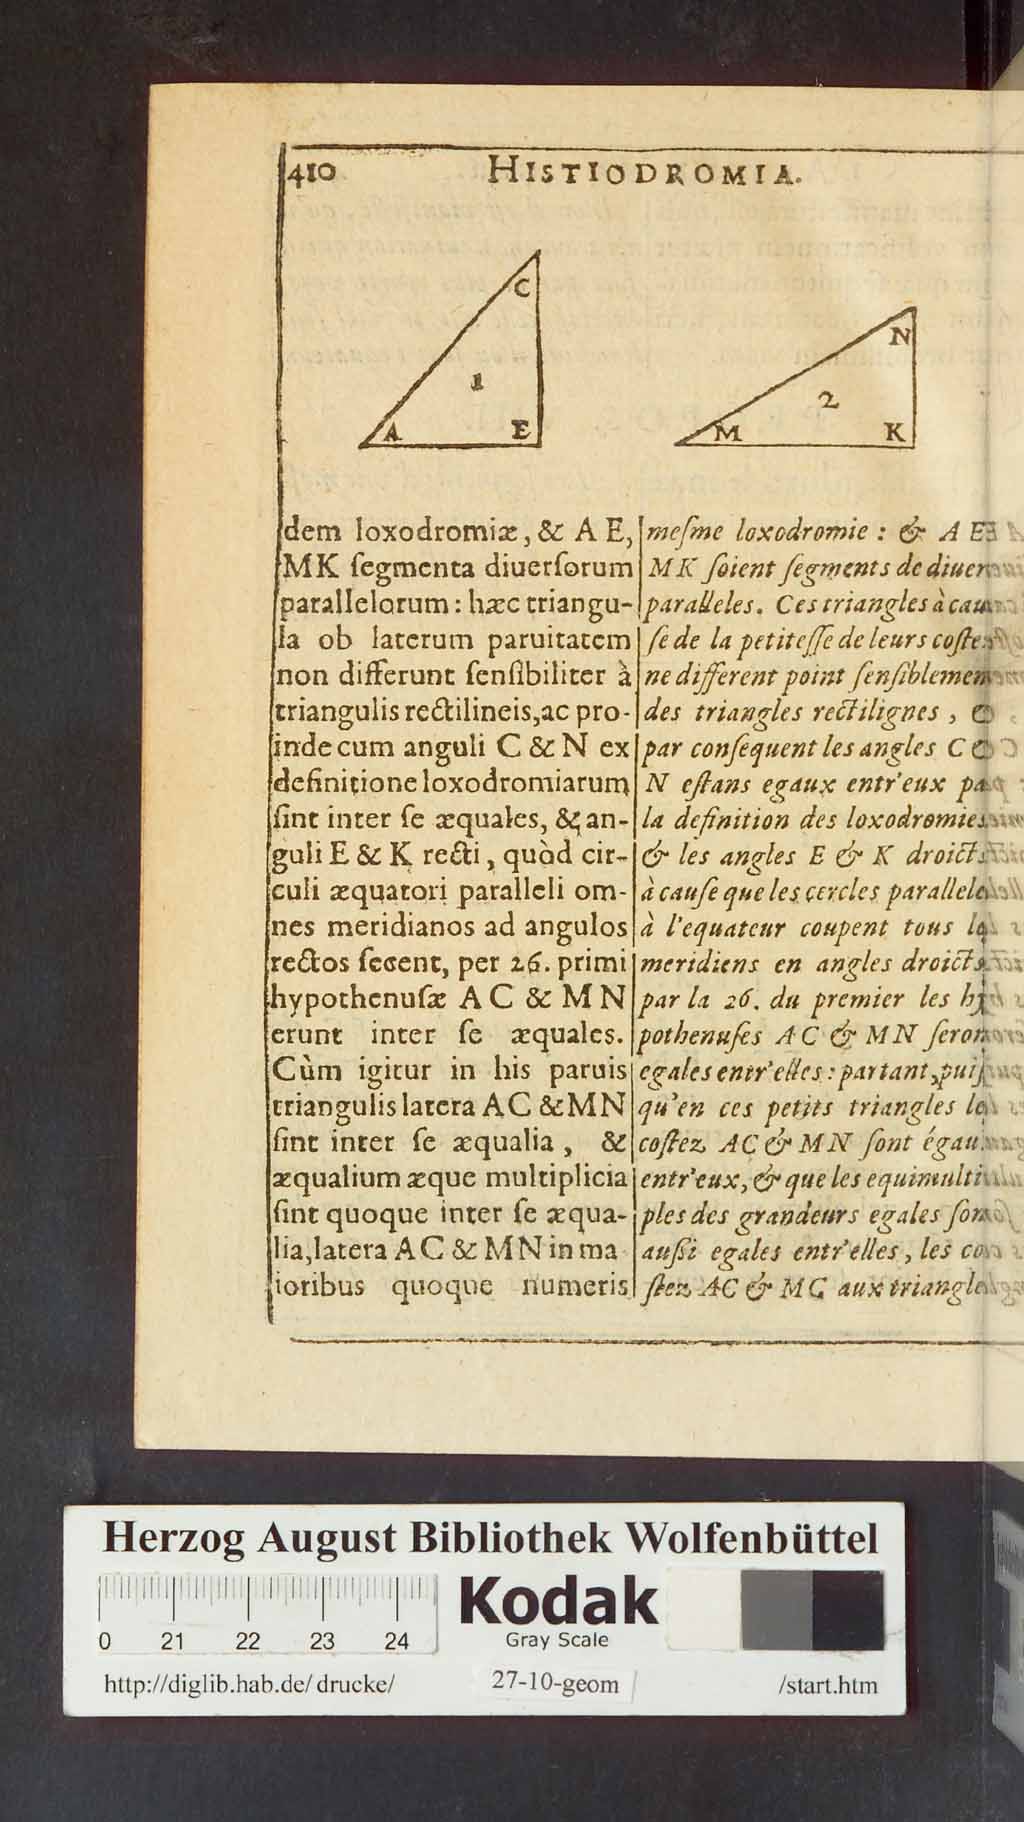 410 HISTIODROMIA.
C
1
A E
N
2
M K
dem loxodromiæ, & A E,
MK ſegmenta diuerſorum
parallelorum: hæc triangu-
la ob laterum paruitatem
non differunt ſenſibiliter à
triangulis rectilineis, ac pro-
inde cum anguli C & N ex
definitione loxodromiarum
ſint inter ſe æquales, & an-
guli E & K recti, quòd cir-
culi æquatori paralleli om-
nes meridianos ad angulos
rectos ſecent, per 26. primi
hypothenuſæ A C & M N
erunt inter ſe æquales.
Cùm igitur in his paruis
triangulis latera A C & MN
ſint inter ſe æqualia, &
æqualium æque multiplicia
ſint quoque inter ſe æqua-
lia, latera A C & M N in ma
ioribus quoque numeris
meſme loxodromie : & A E
MK ſoient ſegments de diuer
paralleles. Ces triangles à cau
ſe de la petiteſſe de leurs coſte
ne different point ſenſiblemen
des triangles rectilignes, &
par conſequent les angles C &
N eſtans egaux entr'eux pa
la definition des loxodromies
& les angles E & K droicts
à cauſe que les cercles parallele
à l'equateur coupent tous le
meridiens en angles droicts
par la 26. du premier les hy
pothenuſes A C & M N ſeron
egales entr'elles : partant, puiſ
qu'en ces petits triangles le
coſtez AC & M N ſont égau
entr'eux, & que les equimulti
ples des grandeurs egales ſon
auſſi egales entr'elles, les co
ſtez AC & MC aux triangle
Herzog August Bibliothek Wolfenbüttel
0 21 22 23 24
Kodak
Gray Scale
http://diglib.hab.de/ drucke/ 27-10-geom /start.htm